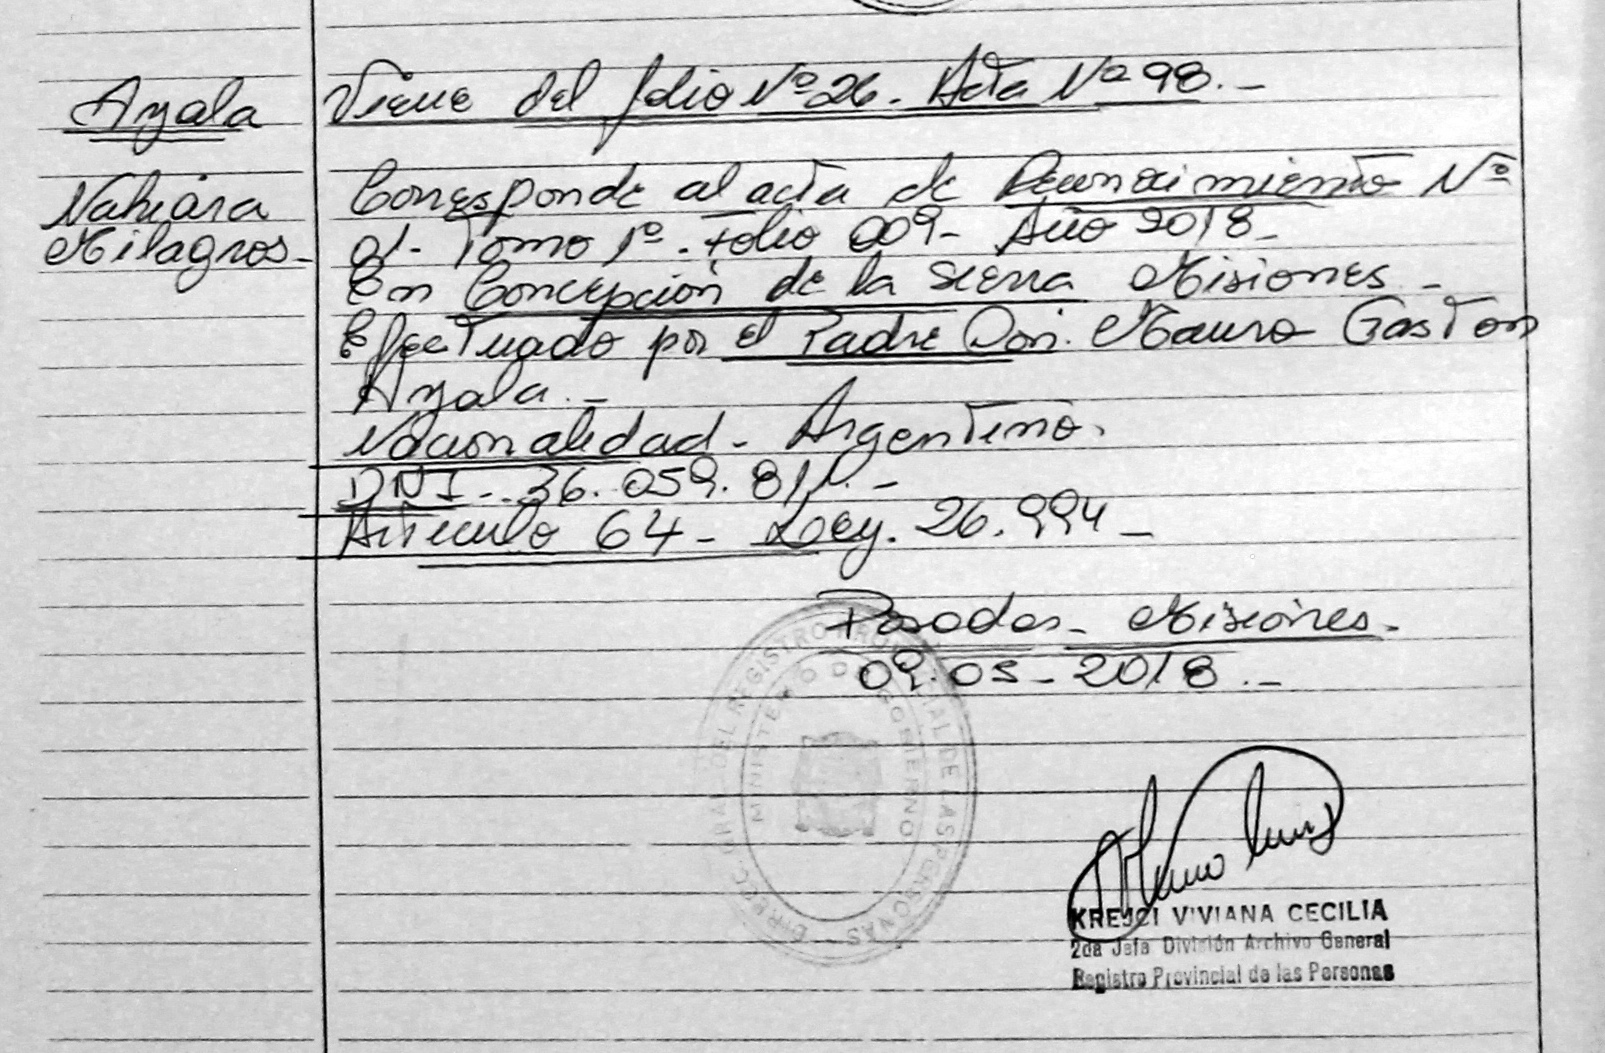 Ayala
Nahiara
Milagros.-
Viene del folio Nº 26. Acta Nº 98.-
Corresponde al acta de Reconocimiento Nº
01- Tomo 1º. folio 009- Año 2018-
En Concepción de la Sierra Misiones-
Efectuado por el Padre Don. Mauro Gaston
Ayala.-
Nacionalidad- Argentino.
DNI-. 36.059.81
Articulo 64- Ley. 26.994-
Posadas- Misiones-
09.05-2018.-
DIRECC GRAL DEL REGISTRO PROVINCIAL DE LAS PERSONAS
MINISTERIO DE GOBIERNO
KREJCI VIVIANA CECILIA
2da Jefa División Archivo General
Registro Provincial de las Personas